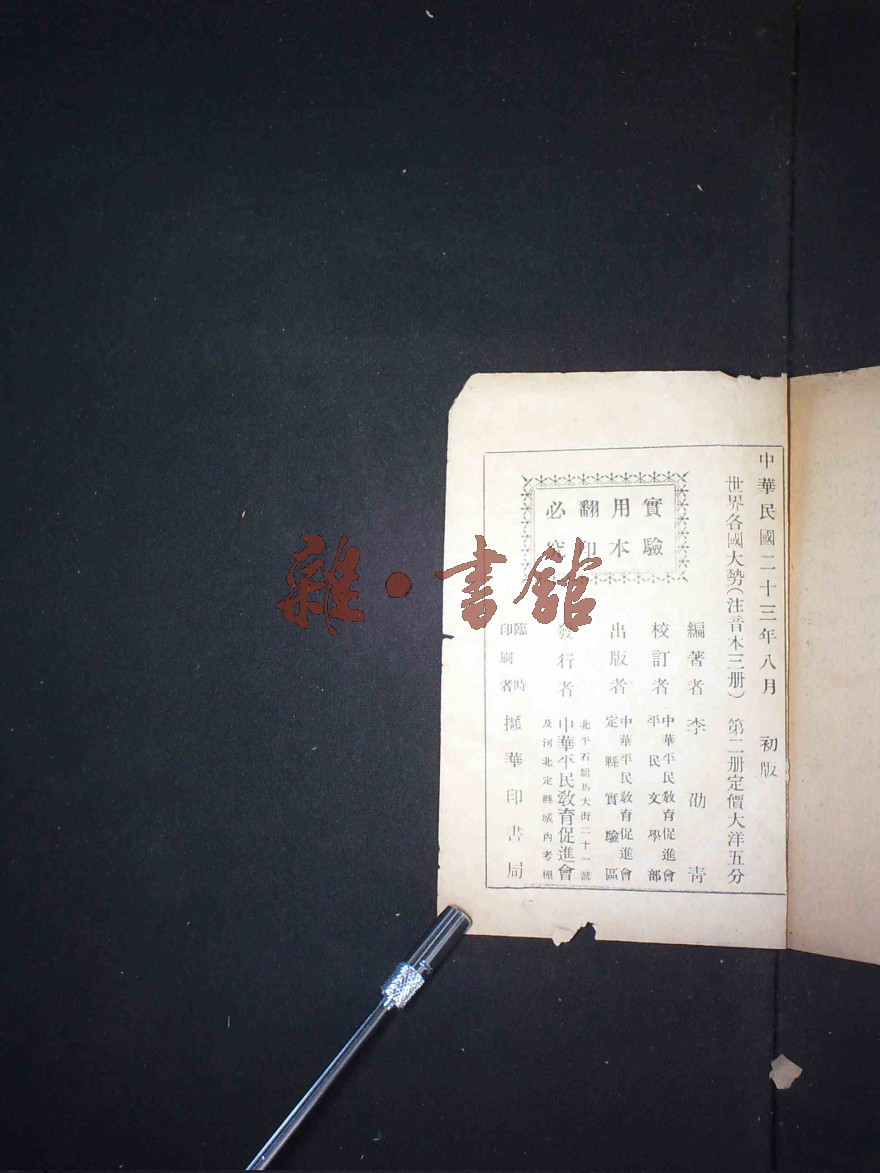 中華民國二十三年八月 初版
世界各國大勢(注音本三册) 第二册定價大洋五分
實驗
用本
翻印
必究
編著者 李劭青
校訂者 中華平民教育促進會
平民文學部
出版者 中華平民教育促進會
定縣實驗區
發行者 北平石駙馬大街二十一號
中華平民教育促進會
及河北定縣城內考棚
臨時
印刷者 擷華印書局
雜·書館